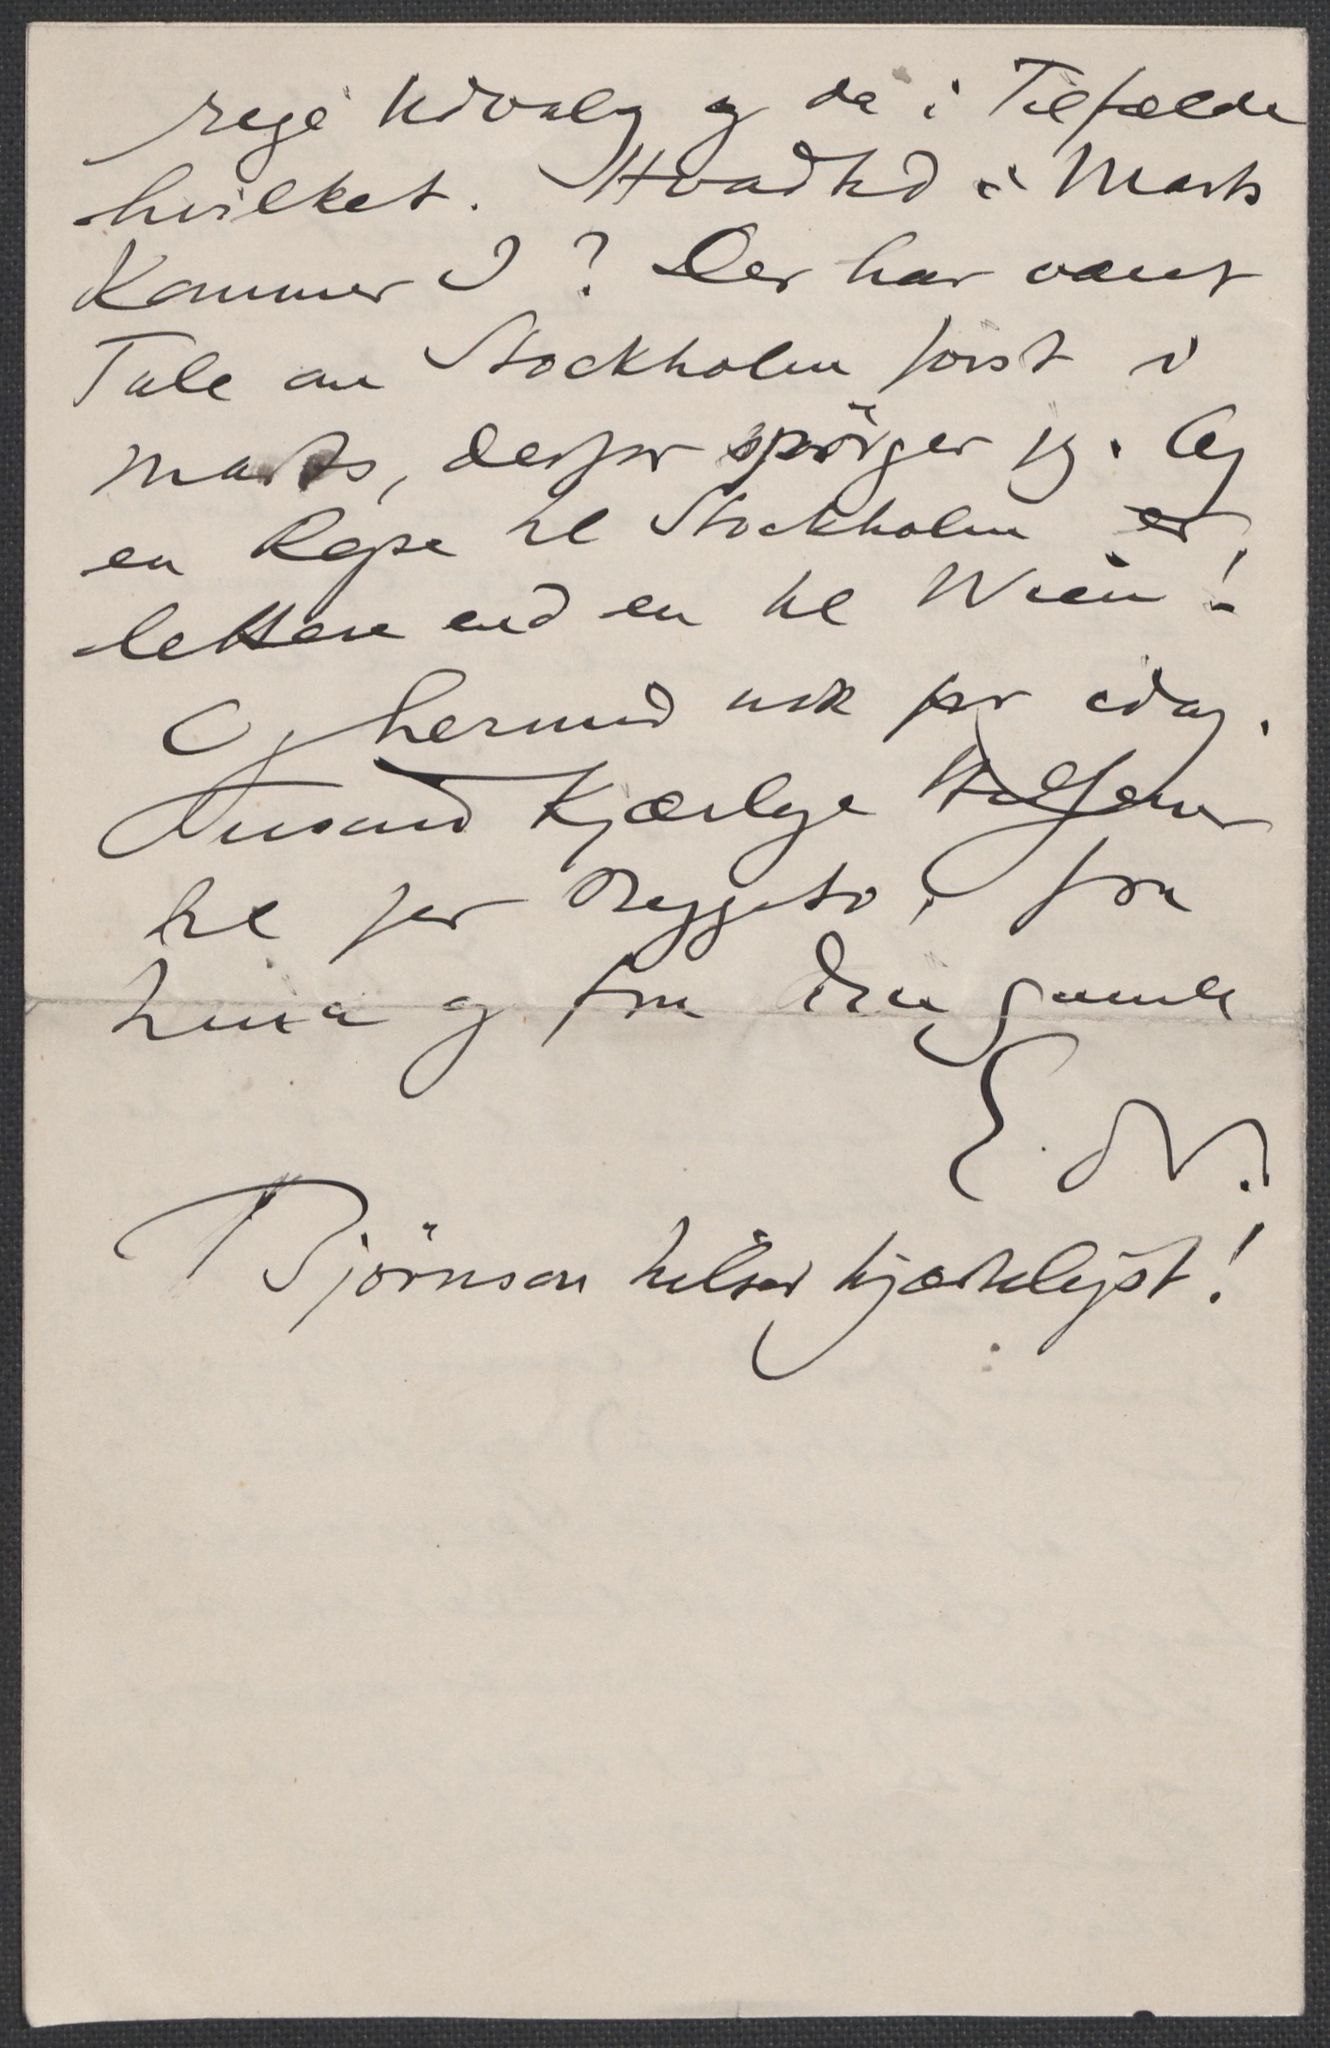 rige Udvalg og da i Tilfælde
hvilket. Hvadtid i Marts
Kommer I? Der har været
Tale om Stockholm först i
Marts, derfor spörger jeg. Og
en Rejse til Stockholm er
lettere end en til Wien!
Og hermed nok for idag.
Tusind Kjærlige Hilsener
til jer Begge to, fra
Nina og fra Din gamle
E. G.
Björnson hilser hjerteligst!